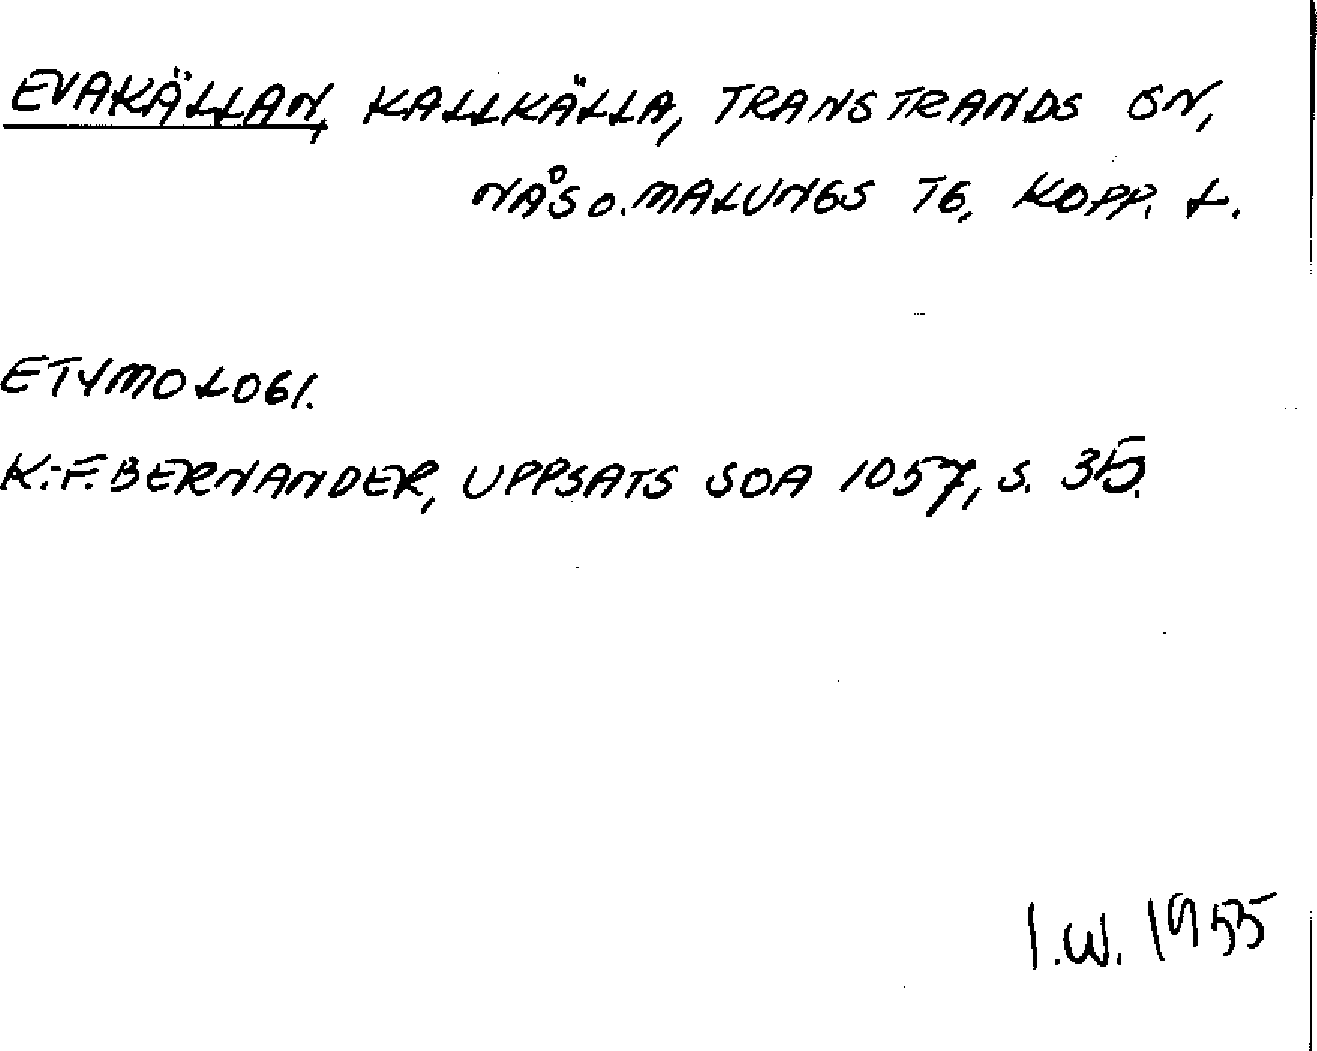 EVAKÄLLAN, KALLKÄLLA, TRANSTRANDS SN,
NÅS O. MALUNGS TG, KOPP. L.
ETYMOLOGI.
K.-F. BERNANDER, UPPSATS SOA 1057, S. 35.
I.W. 1955